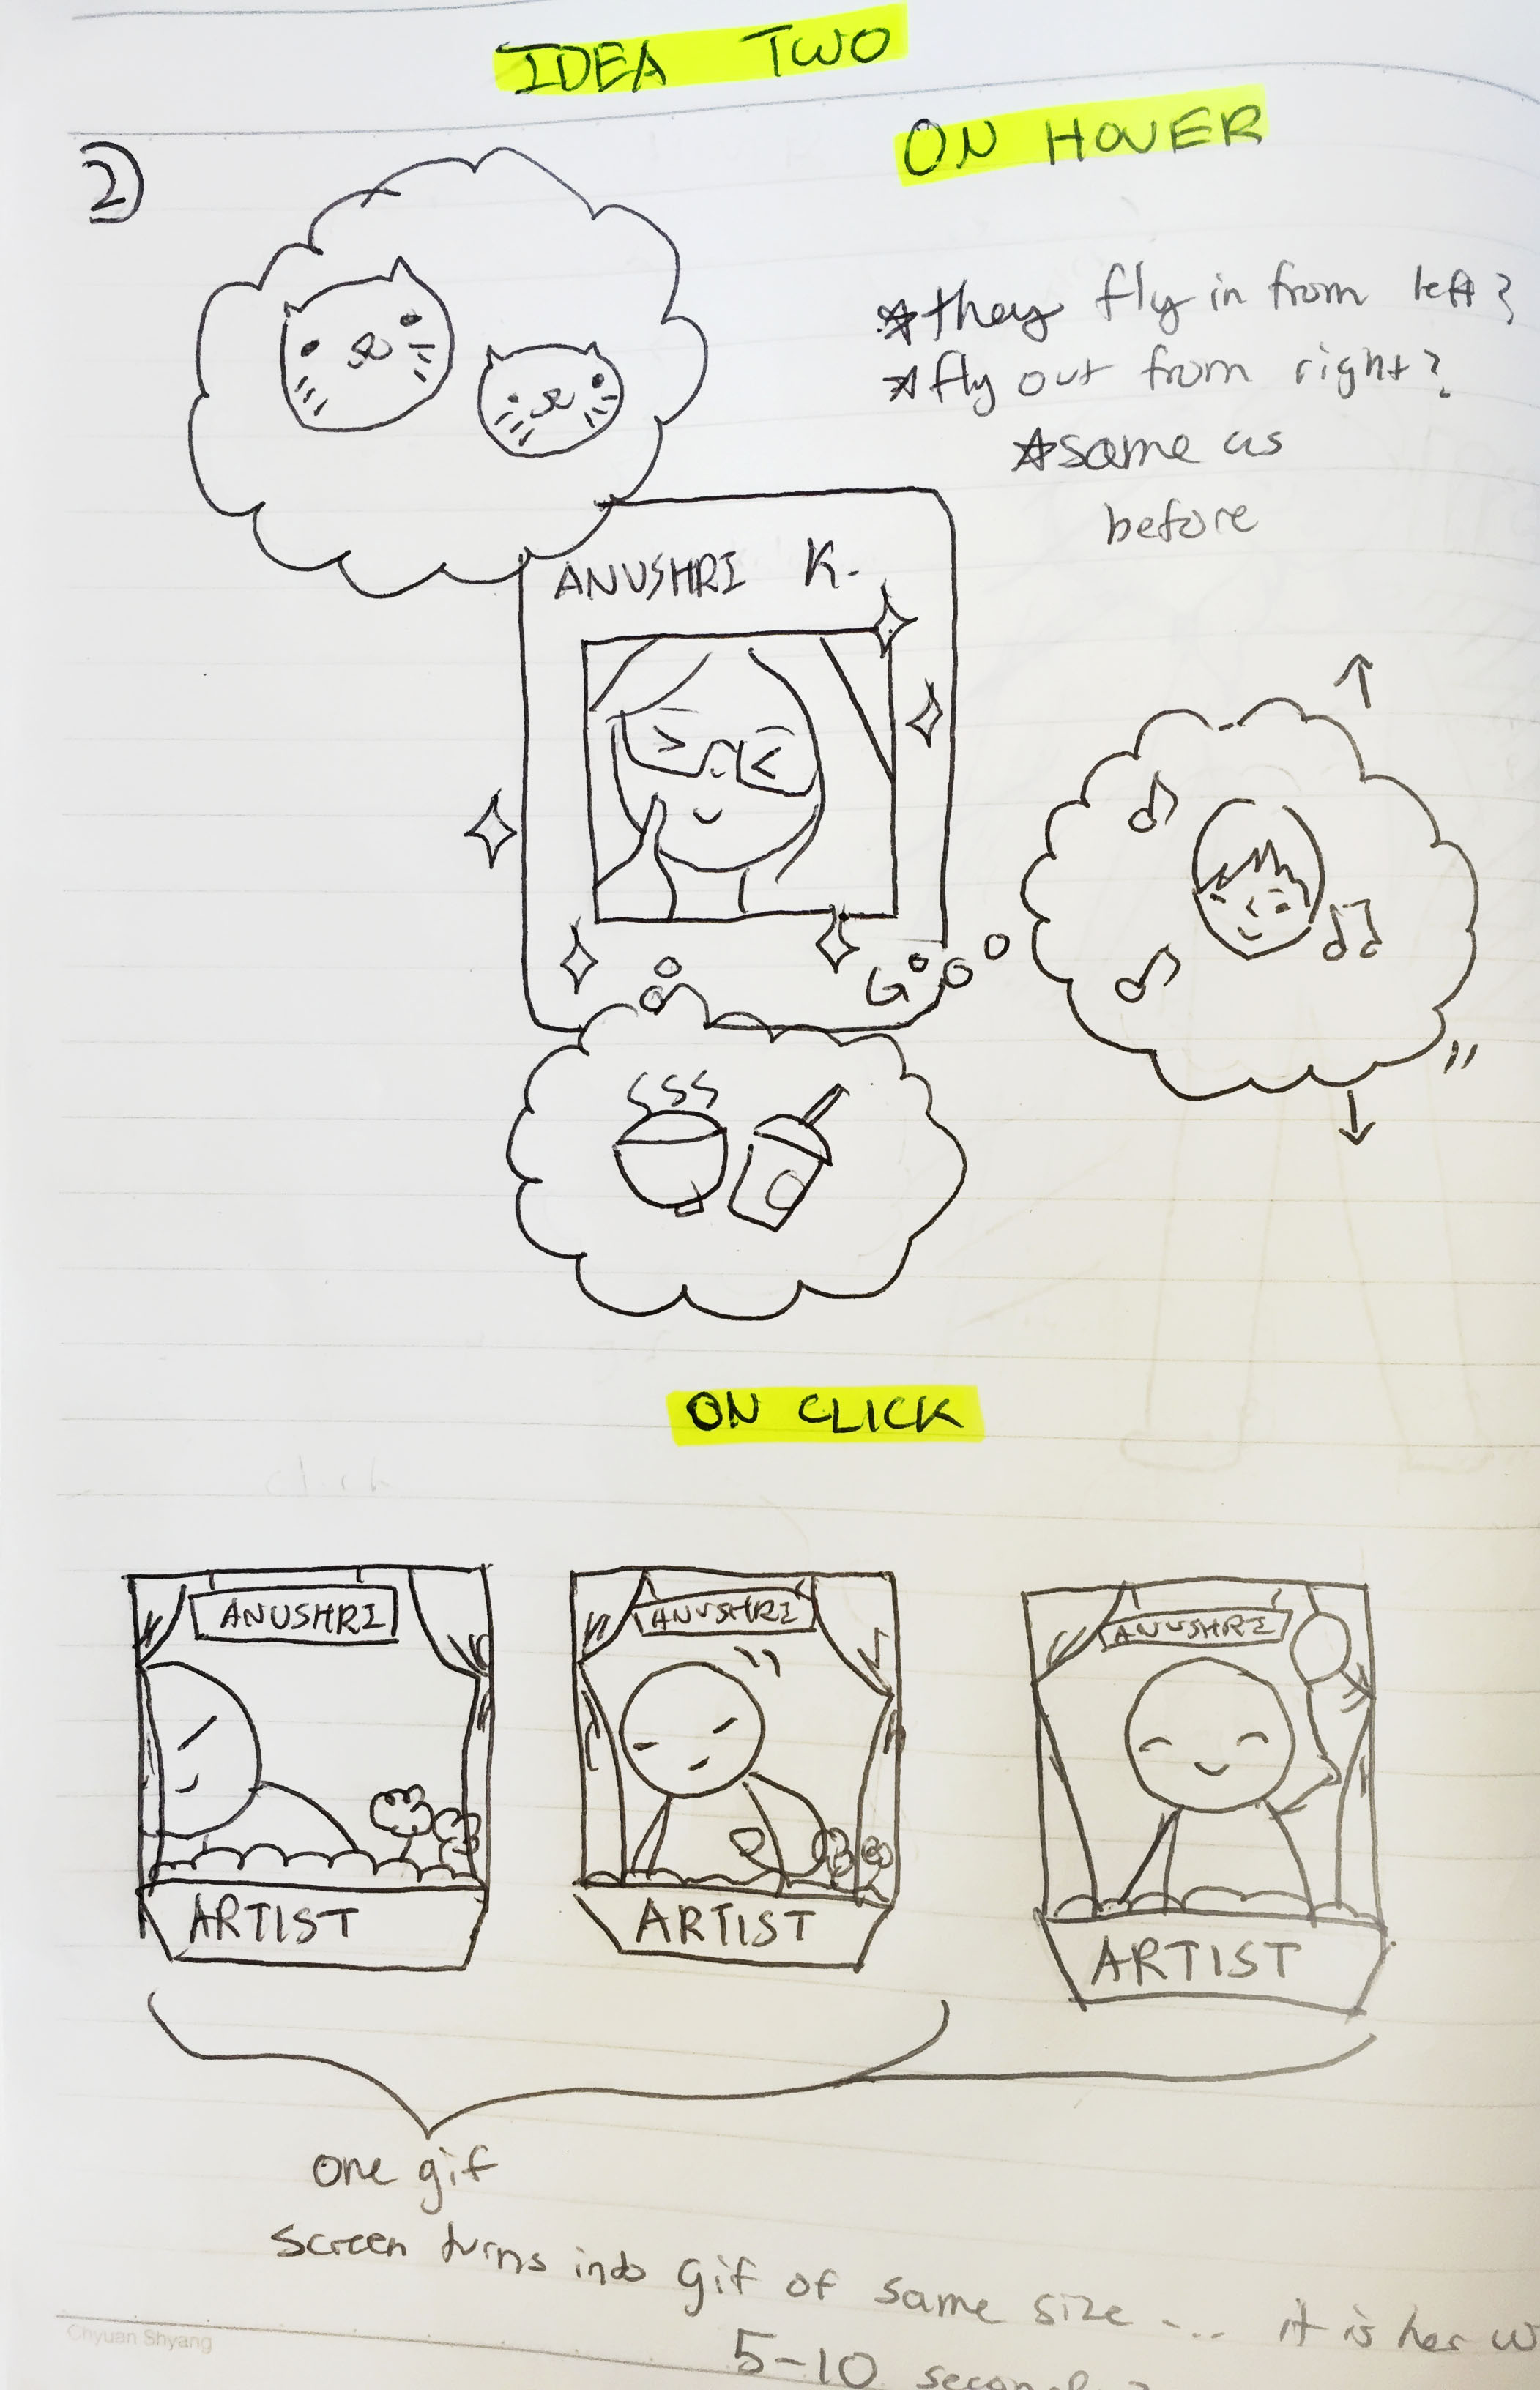 IDEA TWO
ON HOVER
2
☆they fly in from left?
☆fly out from right?
☆same as
before
ANUSHRI K.
ON CLICK
ANUSHRI
ARTIST
ANUSHRI
ARTIST
ANUSHRI
ARTIST
one gif
screen turns into gif of same size.... it is her w
5-10
Chyuan Shyang